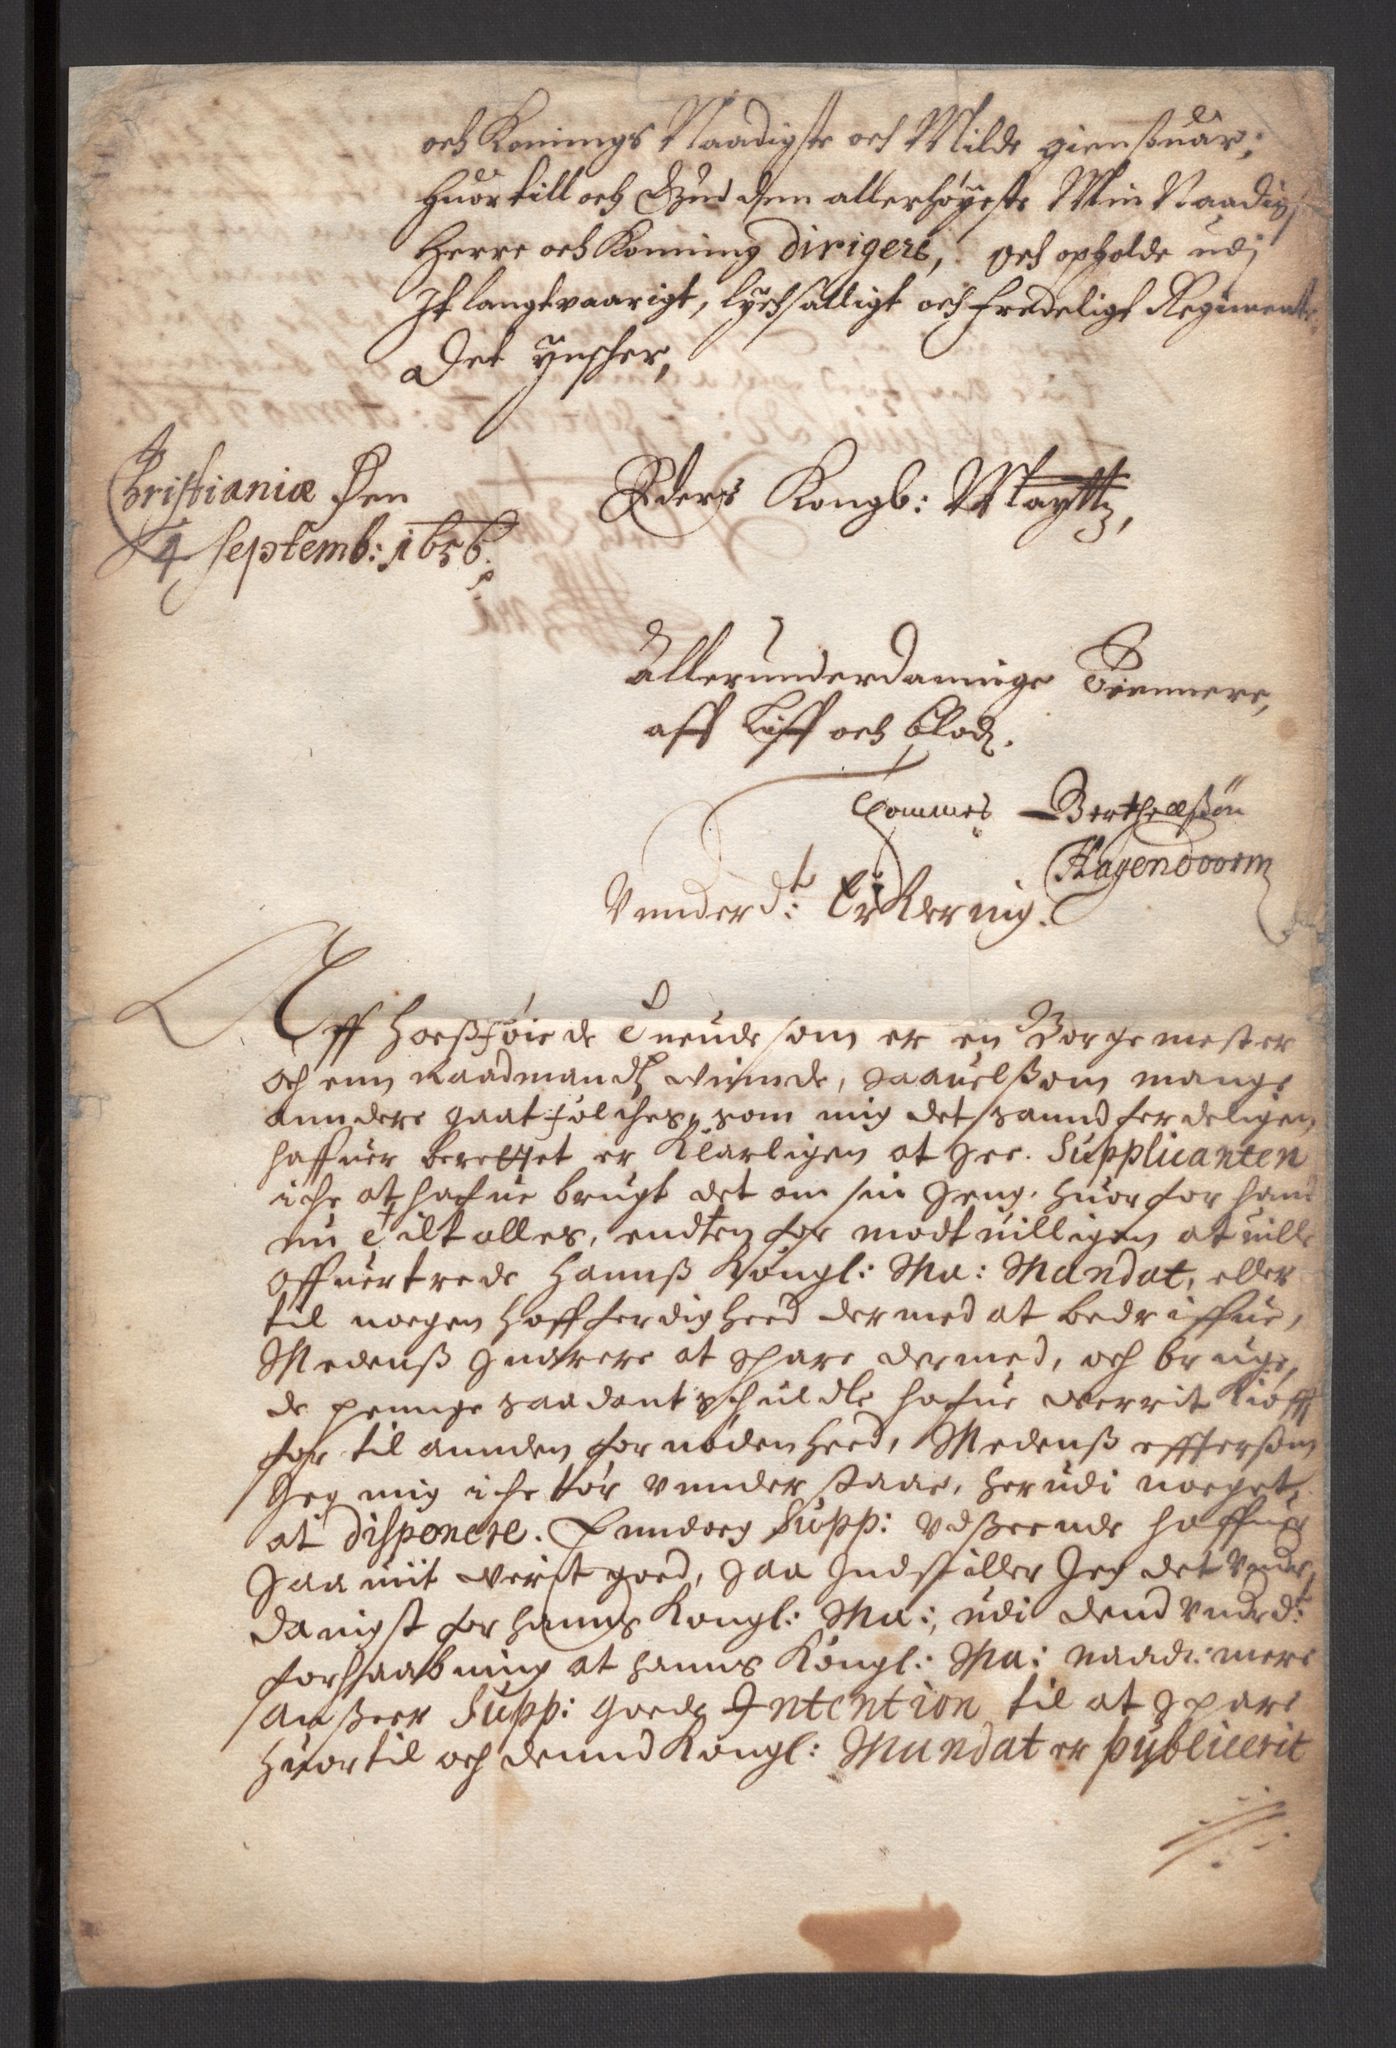 och Konings Naadigste och Milde giensuar;
Huortill och Gud denn allerhöyeste Min Naadigste
Herre och Koning dirigere, och opholde udj
It langtvaarigt, lychsalligt och fredeligt Regimente,
Det ynscher,
Christianiæ Den
4 Septemb: 1656.
Eders Kongb: Maytz,
Allerunderdanige Tiennere,
aff Liff och blod.
Tommes Berthelßøn
Hagendoorn
Vnnderdt: Erklering.
Aff hoesføiede Tvende som er en Borgemester
och enn Raadmandz vinnde, saauelsom mange
anndere gaat folches, som mig det sanndferdeligen
haffuer berettet er Klarligen at see. Supplicanten
iche at hafue brugt det om sin Seng, huorfor hand
nu tiltalles, endten for modtuilligen at uille
offuertrede Hannß Kongl: Ma: Mandat, eller
til noegen hoffferdigheed dermed at bedriffue,
Medenß snarere at spare dermed, och bruge,
de penge saadant schulde hafue verrit Kiøfft
for til annden fornødenheed, Medenß efftersom
Jeg mig iche tør vnnderstaae, herudi noeget
at disponere. Enndoeg Supp: vdßeende haffuer
saa uiit verit goed, saa Indstiller Jeg det vnder
danigst for hanns Kongl: Ma:, udi dend vnderdt:
forhaabning at hanns Kongl: Ma: naad: mere
anßeer Supp: goede Intention til at spare
huortil och dennd Kongl: Mandat er publicerit